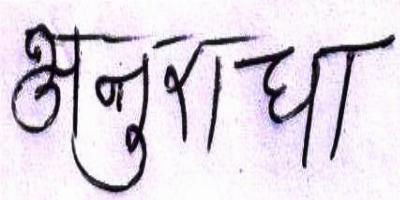 अनुराधा